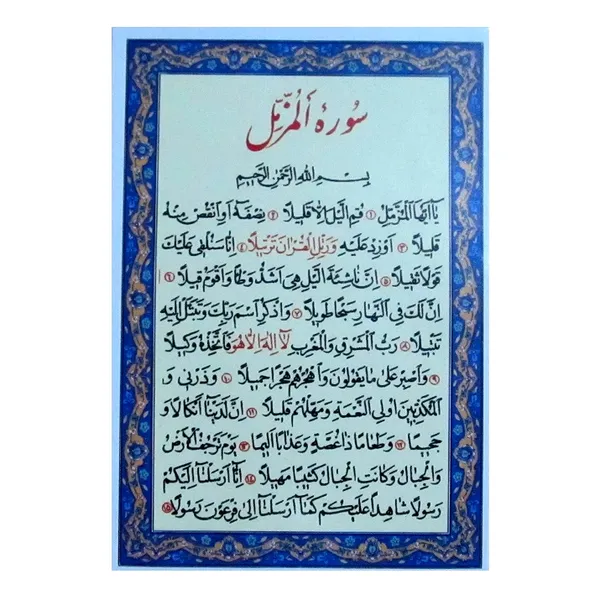 سُورَهٔ اَلْمُزَّمِّل
بِسْمِ اللهِ الرَّحْمٰنِ الرَّحِيمِ
يَا اَيُّهَا الْمُزَّمِّلُ ۱ قُمِ الَّيْلَ اِلاّٰ قَلِيلًا ۲ نِصْفَهُ اَوِ انْقُصْ مِنْهُ
قَلِيلًا ۳ اَوْ زِدْ عَلَيْهِ وَرَتِّلِ الْقُرْاٰنَ تَرْتِيلًا ۴ اِنَّا سَنُلْقِي عَلَيْكَ
قَوْلًا ثَقِيلًا ۵ اِنَّ نَاشِئَةَ الَّيْلِ هِيَ اَشَدُّ وَطْئًا وَاَقْوَمُ قِيلًا ۶
اِنَّ لَكَ فِي النَّهَارِ سَبْحًا طَوِيلًا ۷ وَاذْكُرِ اسْمَ رَبِّكَ وَتَبَتَّلْ اِلَيْهِ
تَبْتِيلًا ۸ رَبُّ الْمَشْرِقِ وَالْمَغْرِبِ لَا اِلٰهَ اِلَّا هُوَ فَاتَّخِذْهُ وَكِيلًا
۹ وَاصْبِرْ عَلٰى مَا يَقُولُونَ وَاهْجُرْهُمْ هَجْرًا جَمِيلًا ۱۰ وَذَرْنِي وَ
الْمُكَذِّبِينَ اُولِي النَّعْمَةِ وَمَهِّلْهُمْ قَلِيلًا ۱۱ اِنَّ لَدَيْنَا اَنْكَالًا وَ
جَحِيمًا ۱۲ وَطَعَامًا ذَا غُصَّةٍ وَعَذَابًا اَلِيمًا ۱۳ يَوْمَ تَرْجُفُ الْاَرْضُ
وَالْجِبَالُ وَكَانَتِ الْجِبَالُ كَثِيبًا مَهِيلًا ۱۴ اِنَّا اَرْسَلْنَا اِلَيْكُمْ
رَسُولًا شَاهِدًا عَلَيْكُمْ كَمَا اَرْسَلْنَا اِلٰى فِرْعَوْنَ رَسُولًا ۱۵